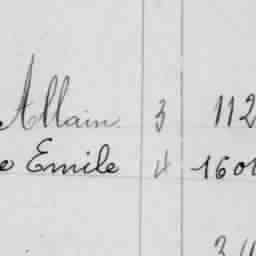 Allain 3 112
e Emile 4 1601